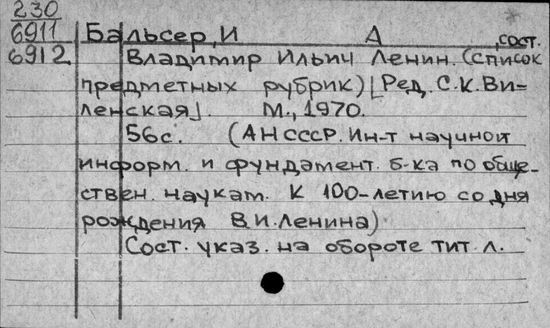 230
6911 Бальсер, И А , сост.
6912 Владимир Ильич Ленин. (Список
предметных рубрик) [Ред. С.К. Ви-
ленская]. М., 1970.
56с. (АН СССР. Ин-т научной
информ. и фундамент. б-ка по обще-
ствен. наукам. К 100-летию со дня
рождения В.И. Ленина)
Сост. указ. на обороте тит. л.